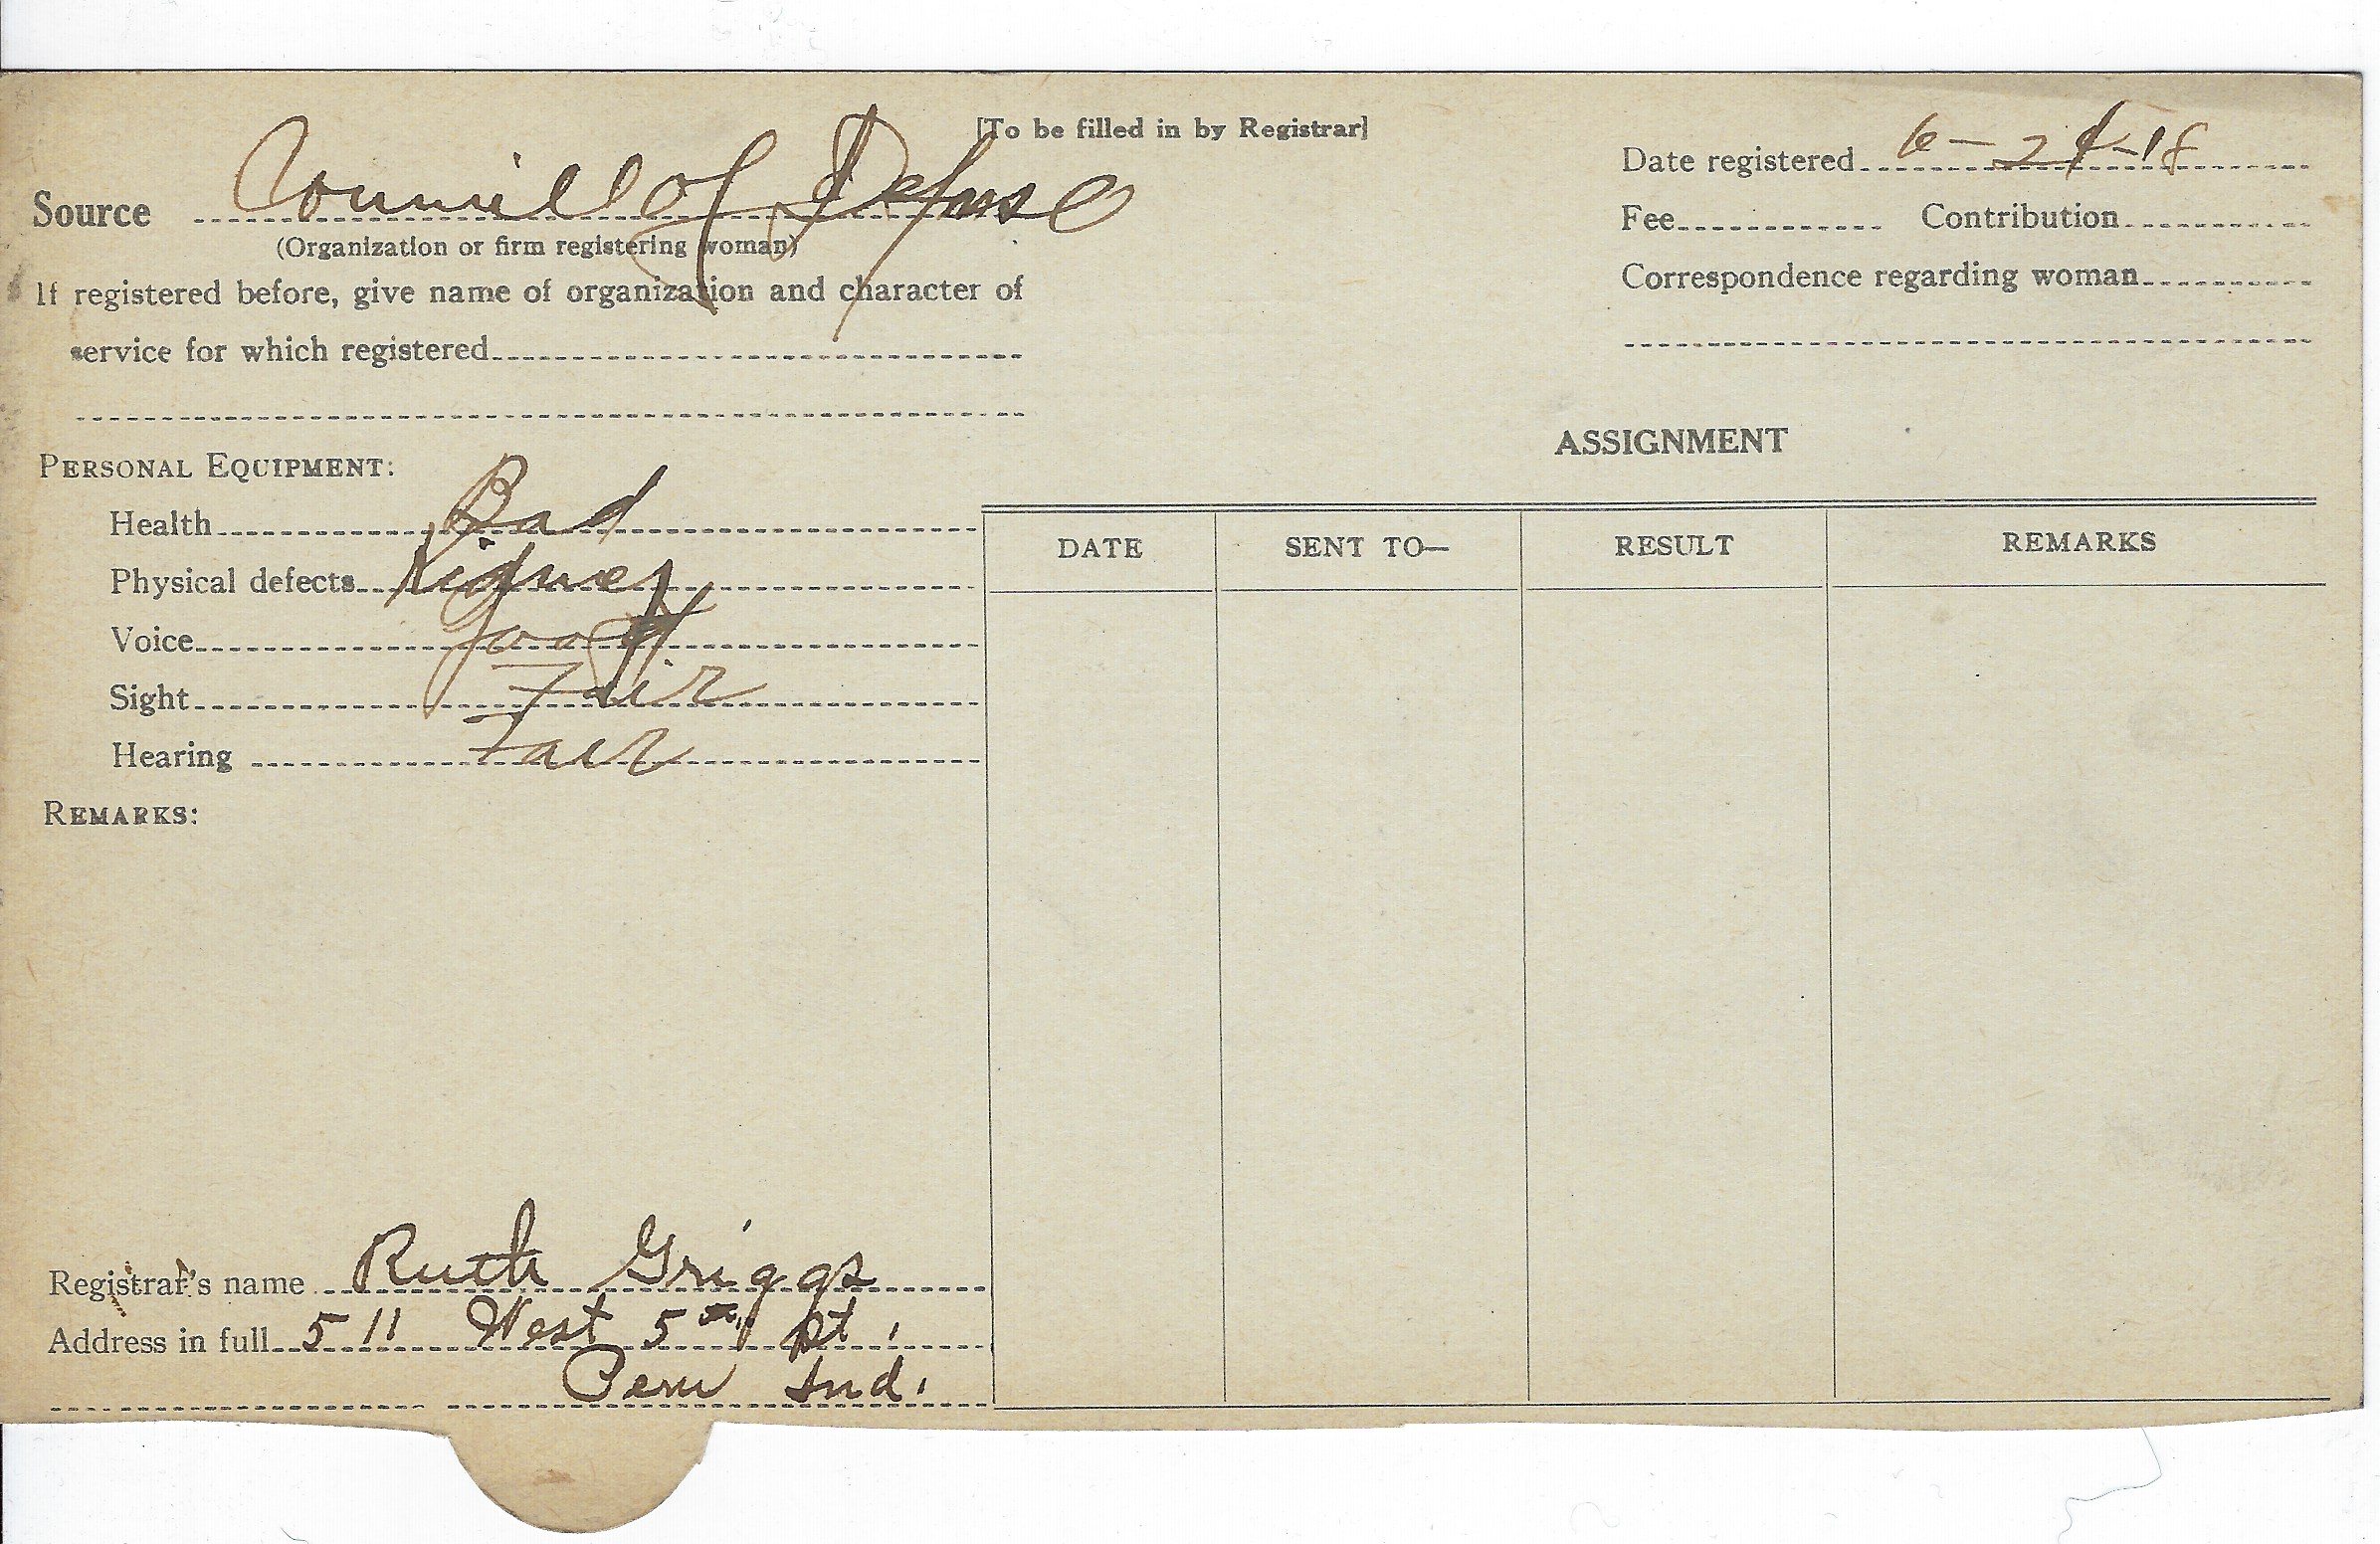 [To be filled in by Registrar]
Source Councill of Defense
(Organization or firm registering woman)
If registered before, give name of organization and character of
service for which registered
Date registered 6-24-18
Fee Contribution
Correspondence regarding woman
PERSONAL EQUIPMENT:
Health Bad
Physical defects Kidney
Voice Good
Sight Fair
Hearing Fair
REMARKS:
ASSIGNMENT
DATE SENT TO— RESULT REMARKS
Registrar's name Ruth Griggs
Address in full 511 West 5th St.
Peru Ind.